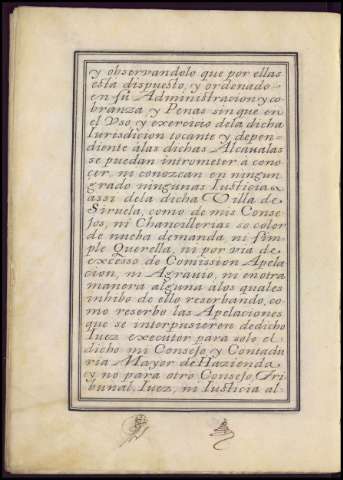 y observandolo que por ellas
esta dispuesto, y ordenado
en sú Administracion y co
branza y Penas sin que en
el Vso, y exercicio dela dicha
Iurisdicion tocante y depen-
diente álas dichas Alcaualas
se puedan intrometer á cono
cer, ni conozcan en ningun
grado ningunas Iusticias
assi dela dicha Villa de
Siruela, como de mis Conse
jos, ni Chancillerias so color
de nueba demanda, ni sim
ple Querella, ni por via de
excesso de Comission Apela
cion, ni Agrauio, ni enotra
manera alguna alos quales
inhibo de ello reserbando, co
mo reserbo las Apelaciones
que se interpusieren dedicho
Iuez executor para solo el
dicho mi Consejo y Contadu
ria Mayor de Hazienda
y no para otro Consejo, Tri
bunal, Iuez, ni Iusticia al-